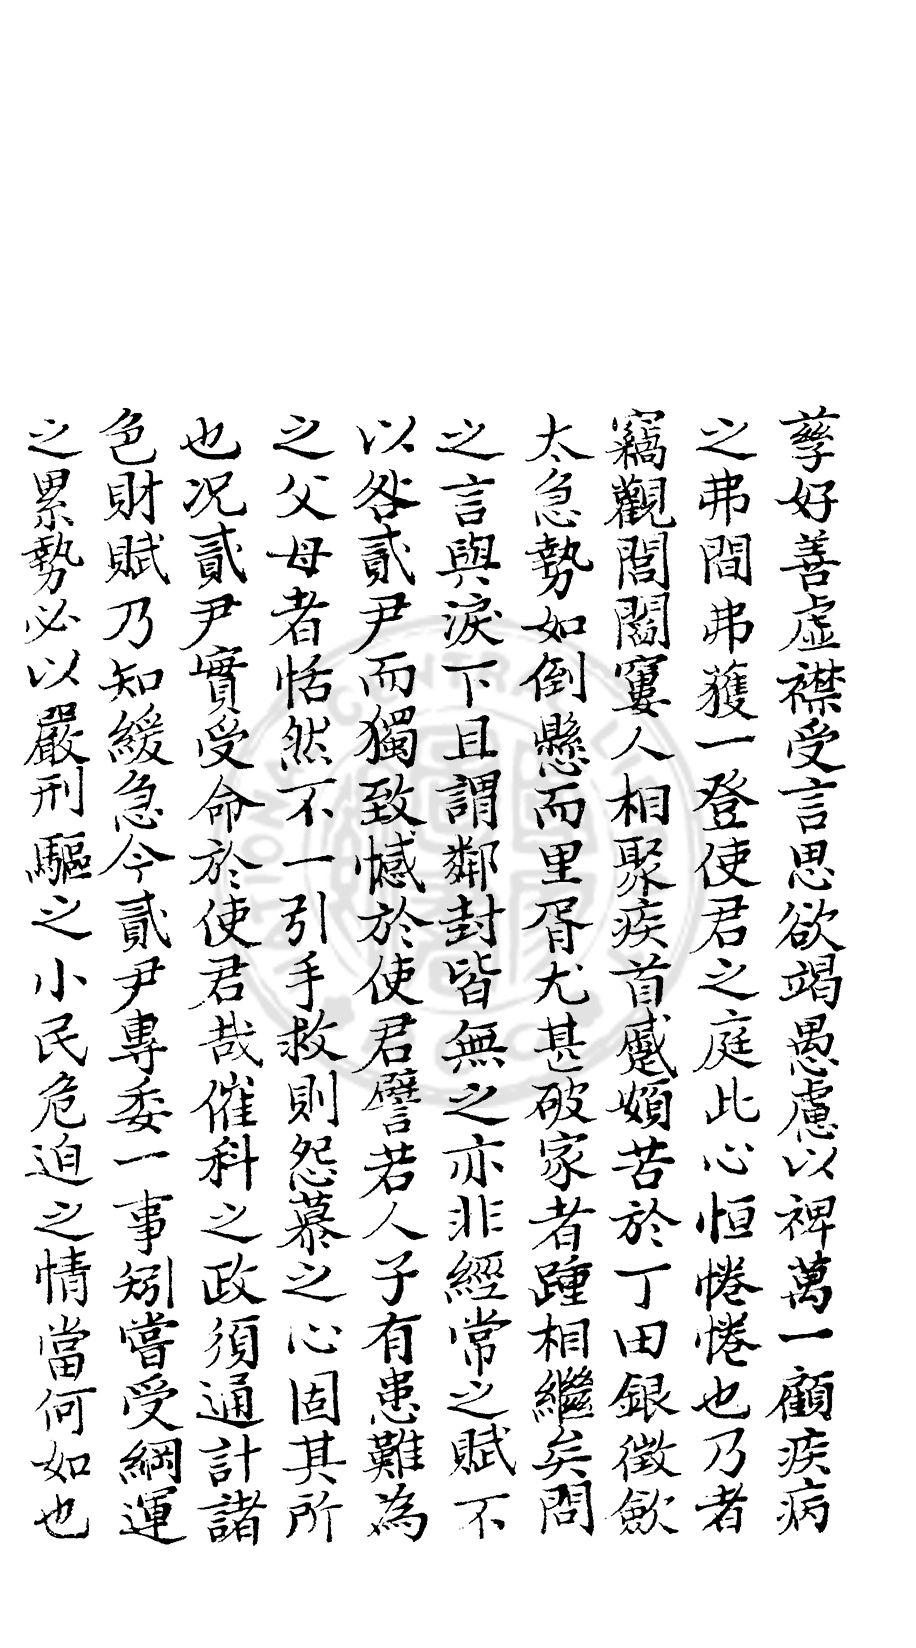 孳好善虛襟受言思欲竭愚慮以裨萬一顧疾病
之弗間弗獲一登使君之庭此心恒惓惓也乃者
竊觀閭閻窶人相聚疾首蹙頞苦於丁田銀徵斂
太急勢如倒懸而里胥尤甚破家者踵相繼矣問
之言與淚下且謂鄰封皆無之亦非經常之賦不
以咎貳尹而獨致憾於使君譬若人子有患難為
之父母者恬然不一引手救則怨慕之心固其所
也况貳尹實受命於使君哉催科之政須通計諸
色財賦乃知緩急今貳尹專委一事矧嘗受綱運
之累勢必以嚴刑驅之小民危迫之情當何如也